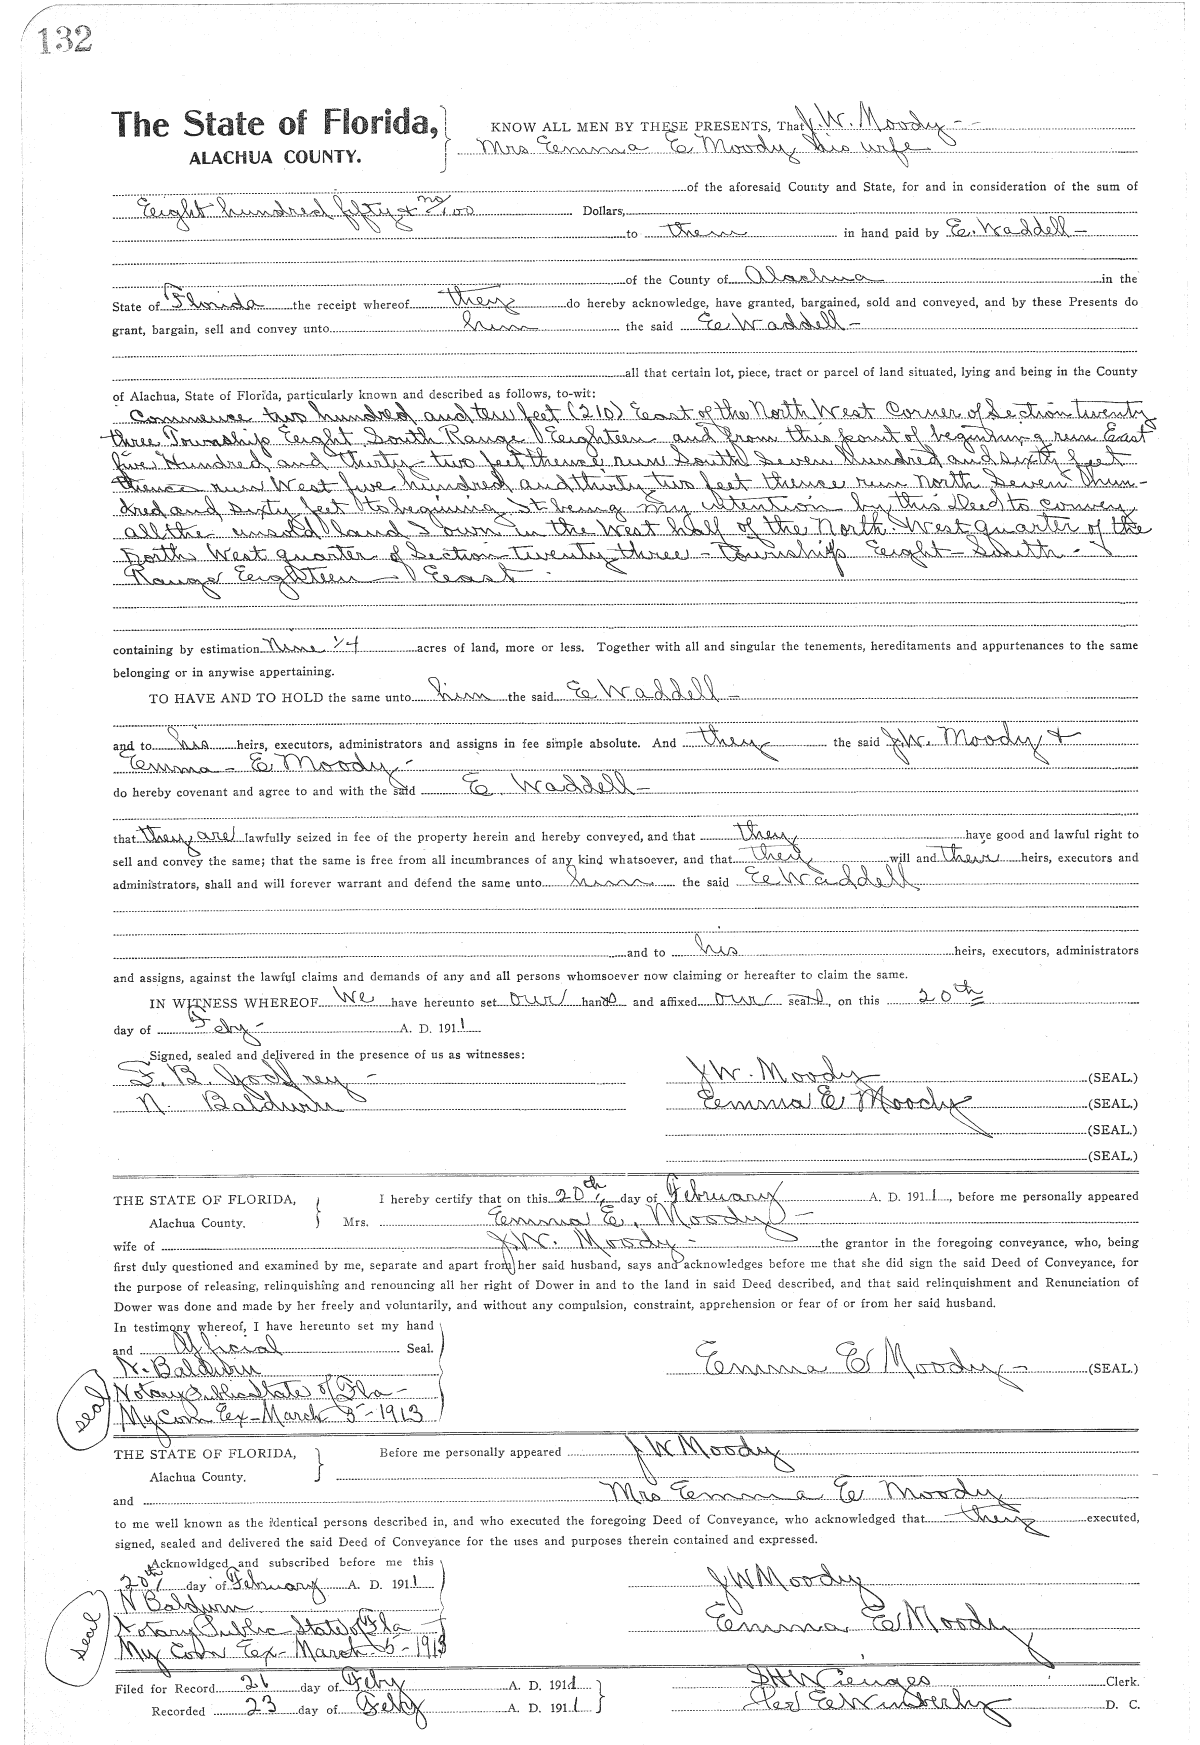 132
The State of Florida, KNOW ALL MEN BY THESE PRESENTS, That J.W. Moody -
ALACHUA COUNTY. Mrs Emma E Moody his wife
of the aforesaid County and State, for and in consideration of the sum of
Eight hundred fifty & no/100 Dollars,
to them in hand paid by E. Waddell -
of the County of Alachua in the
State of Florida the receipt whereof they do hereby acknowledge, have granted, bargained, sold and conveyed, and by these Presents do
grant, bargain, sell and convey unto him the said E Waddell -
all that certain lot, piece, tract or parcel of land situated, lying and being in the County
of Alachua, State of Florida, particularly known and described as follows, to-wit:
Commence two hundred and ten feet (210) East of the North West Corner of Section twenty
three Township Eight South Range Eighteen and from this point of beginning run East
five Hundred and thirty-two feet thence run South Seven Hundred and sixty feet
thence run West five hundred and thirty two feet thence run North Seven hun-
dred and sixty feet to begining it being my intention by this Deed to convey
all the unsold land I own in the West half of the North West quarter of the
North West quarter of Section twenty three - Township Eight - South -
Range Eighteen - East
containing by estimation Nine 1/4 acres of land, more or less. Together with all and singular the tenements, hereditaments and appurtenances to the same
belonging or in anywise appertaining.
TO HAVE AND TO HOLD the same unto him the said E Waddell -
and to his heirs, executors, administrators and assigns in fee simple absolute. And they the said J.W. Moody &
Emma - E Moody -
do hereby covenant and agree to and with the said E Waddell -
that they are lawfully seized in fee of the property herein and hereby conveyed, and that they have good and lawful right to
sell and convey the same; that the same is free from all incumbrances of any kind whatsoever, and that they will and their heirs, executors and
administrators, shall and will forever warrant and defend the same unto him the said E Waddell
and to his heirs, executors, administrators
and assigns, against the lawful claims and demands of any and all persons whomsoever now claiming or hereafter to claim the same.
IN WITNESS WHEREOF We have hereunto set our hands and affixed our seals, on this 20th
day of Feby - A. D. 1911
Signed, sealed and delivered in the presence of us as witnesses:
F. B. Godfrey - J W. Moody (SEAL.)
N. Baldwin Emma E Moody (SEAL.)
(SEAL.)
(SEAL.)
THE STATE OF FLORIDA, I hereby certify that on this 20th day of February A. D. 1911, before me personally appeared
Alachua County. Mrs. Emma E. Moody -
wife of J.W. Moody - the grantor in the foregoing conveyance, who, being
first duly questioned and examined by me, separate and apart from her said husband, says and acknowledges before me that she did sign the said Deed of Conveyance, for
the purpose of releasing, relinquishing and renouncing all her right of Dower in and to the land in said Deed described, and that said relinquishment and Renunciation of
Dower was done and made by her freely and voluntarily, and without any compulsion, constraint, apprehension or fear of or from her said husband.
In testimony whereof, I have hereunto set my hand
and Official Seal.
N. Baldwin Emma E Moody - (SEAL.)
seal Notary Public State of Fla -
My Com Ex - March 5 - 1913
THE STATE OF FLORIDA, Before me personally appeared J W Moody
Alachua County.
and Mrs Emma E Moody
to me well known as the identical persons described in, and who executed the foregoing Deed of Conveyance, who acknowledged that they executed,
signed, sealed and delivered the said Deed of Conveyance for the uses and purposes therein contained and expressed.
Acknowldged and subscribed before me this
20th day of February A. D. 1911 J W Moody
N Baldwin
seal Notary Public State of Fla Emma E Moody
My Com Ex - March 5 - 1913
Filed for Record 21 day of Feby A. D. 1911 S H Wienges Clerk.
Recorded 23 day of Feby A. D. 1911 Per E Wimberly D. C.